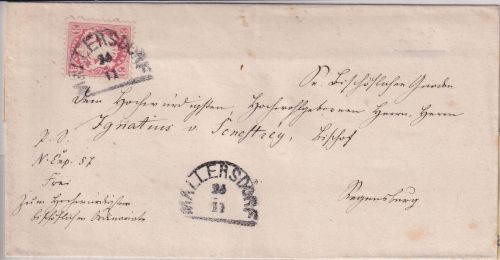 MALLERSDORF
24
11
Sr. Bischöflichen Gnaden
Dem Hochwürdigsten, Hochwohlgeborenen Herrn, Herrn
Ignatius v. Senestrey, Bischof
N. Exp. 57
Frei
Regensburg
Zum Hochwürdigsten
bischöflichen Ordinariate
MALLERSDORF
24
11